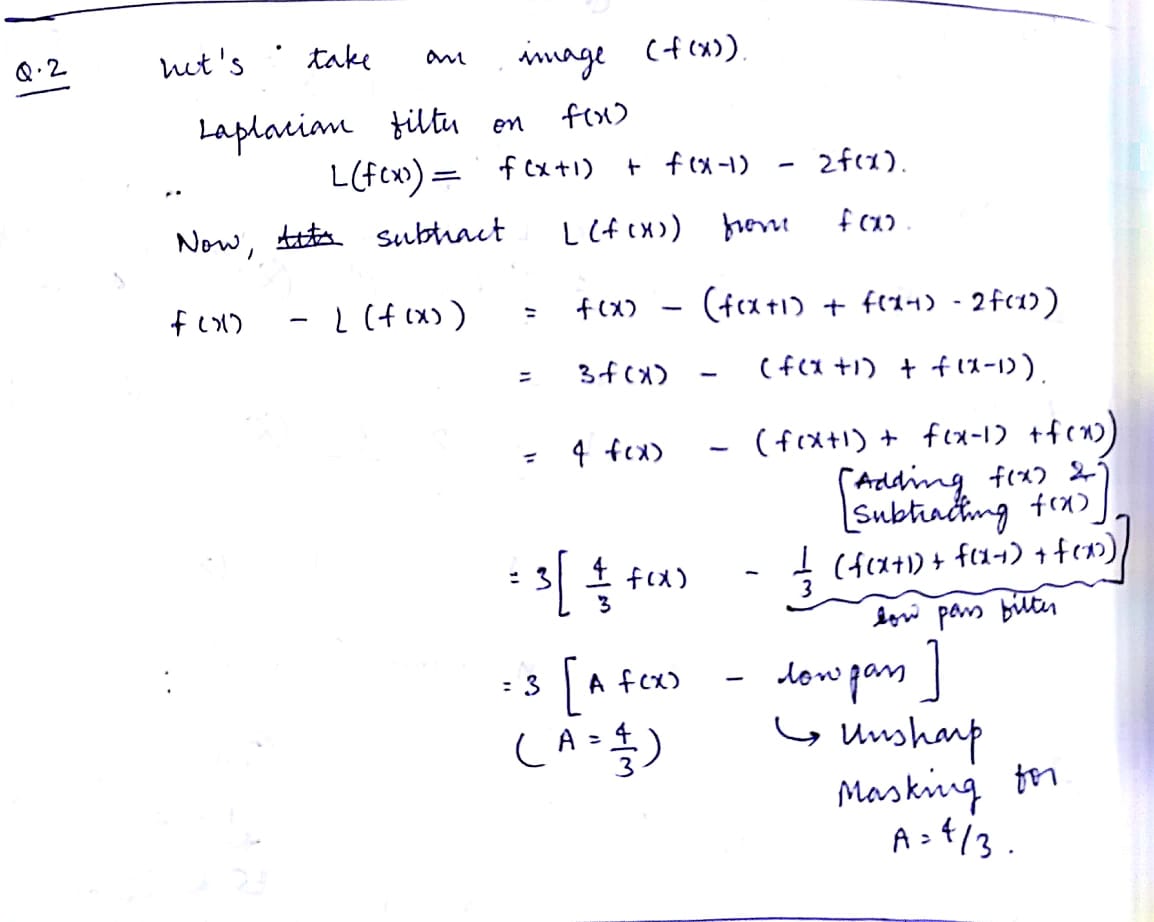 Q.2 Let's take an image (f(x)).
Laplacian filter on f(x)
L(f(x)) = f(x+1) + f(x-1) - 2f(x).
Now, subtract L(f(x)) from f(x).
f(x) - L(f(x)) = f(x) - (f(x+1) + f(x-1) - 2f(x))
= 3f(x) - (f(x+1) + f(x-1)).
= 4 f(x) - (f(x+1) + f(x-1) + f(x))
[Adding f(x) &
Subtracting f(x)]
= 3[ 4/3 f(x) - 1/3 (f(x+1) + f(x-1) + f(x))]
low pass filter
= 3 [A f(x) - low pass]
(A = 4/3) ↳ Unsharp
Masking for
A = 4/3.